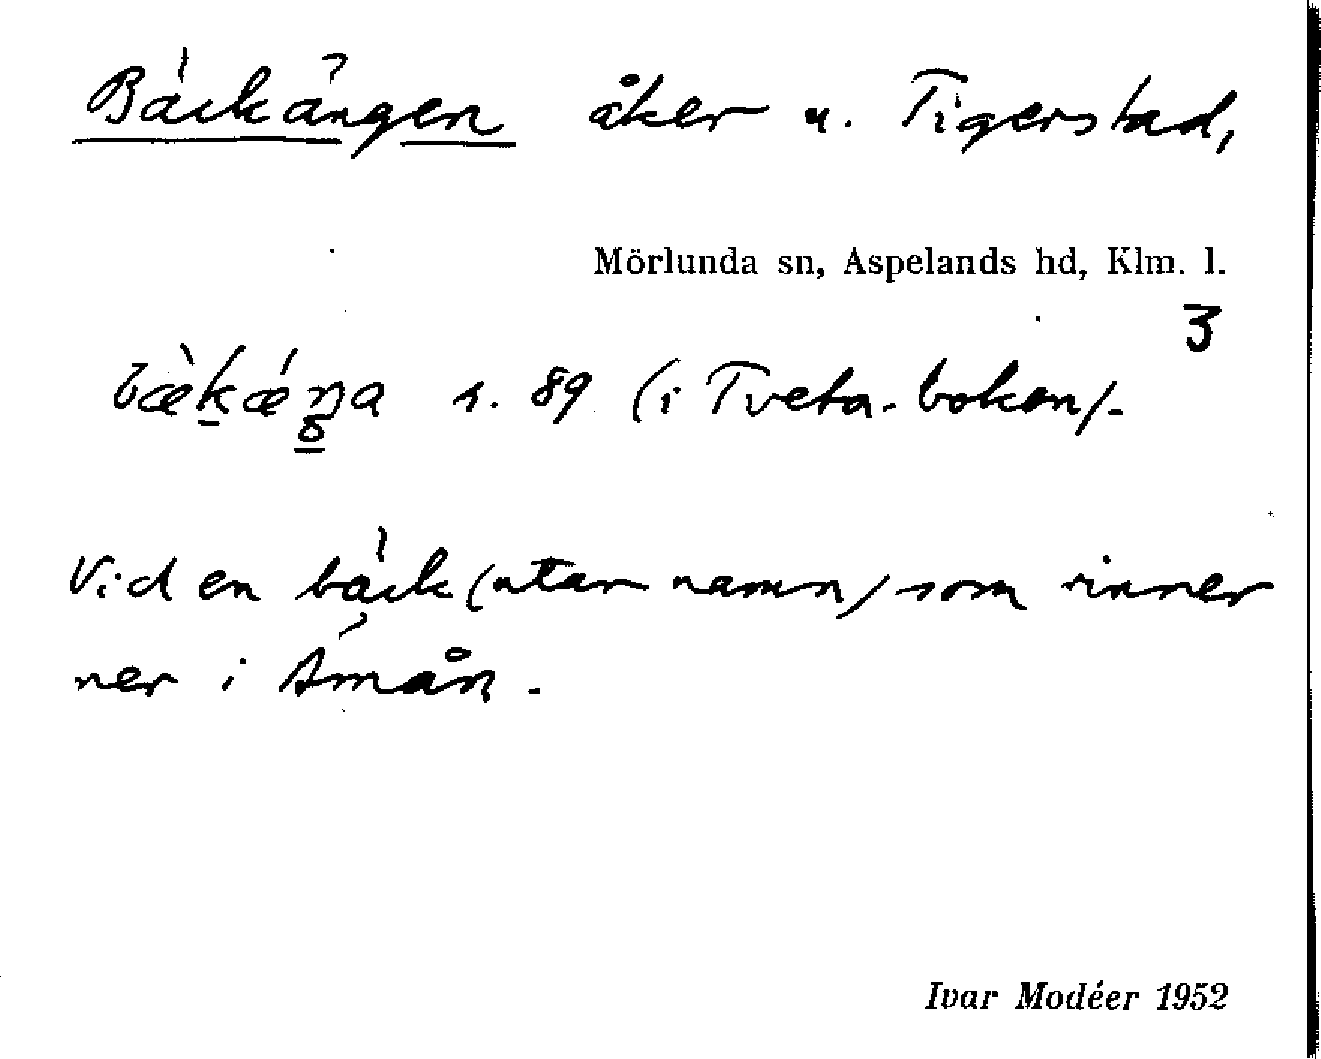 Bäckängen åker u. Tigerstad,
Mörlunda sn, Aspelands hd, Klm. l.
3
bæ̀k̠ǽŋa s. 89 (i Tveta-boken).
Vid en bäck (utan namn) som rinner
ner i Åmån.
Ivar Modéer 1952